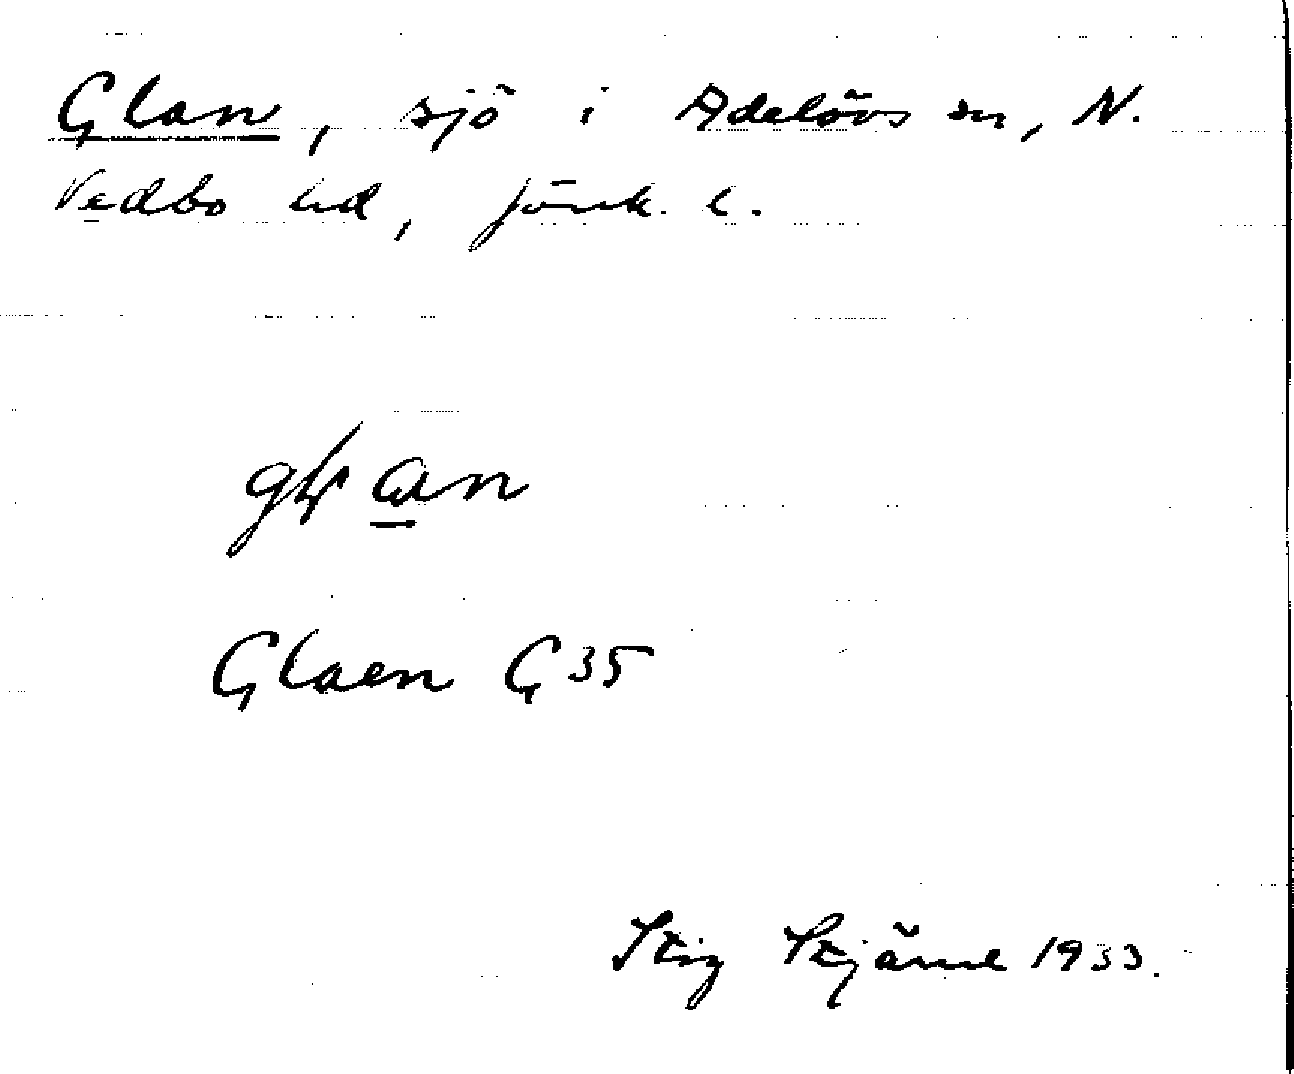 Glan, sjö i Adelövs sn, N.
Vedbo hd, Jönk. l.
Glaen G 35
Stig Stjärne 1933.